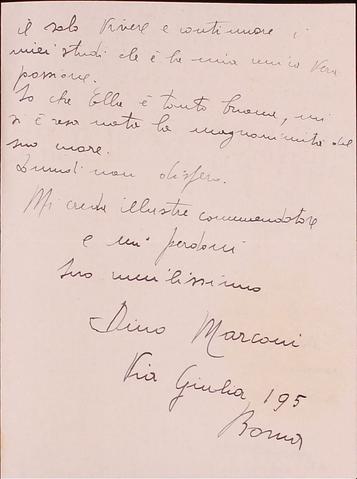 il solo vivere e continuare i
miei studi che è la mia unica vera
passione.
So che Ella è tanto buona, mi
si è resa nota la magnanimità del
suo
non dispero.
Mi creda illustre commendatore
e mi perdoni
Suo umilissimo
Dino Marconi
Via Giulia 195
Roma